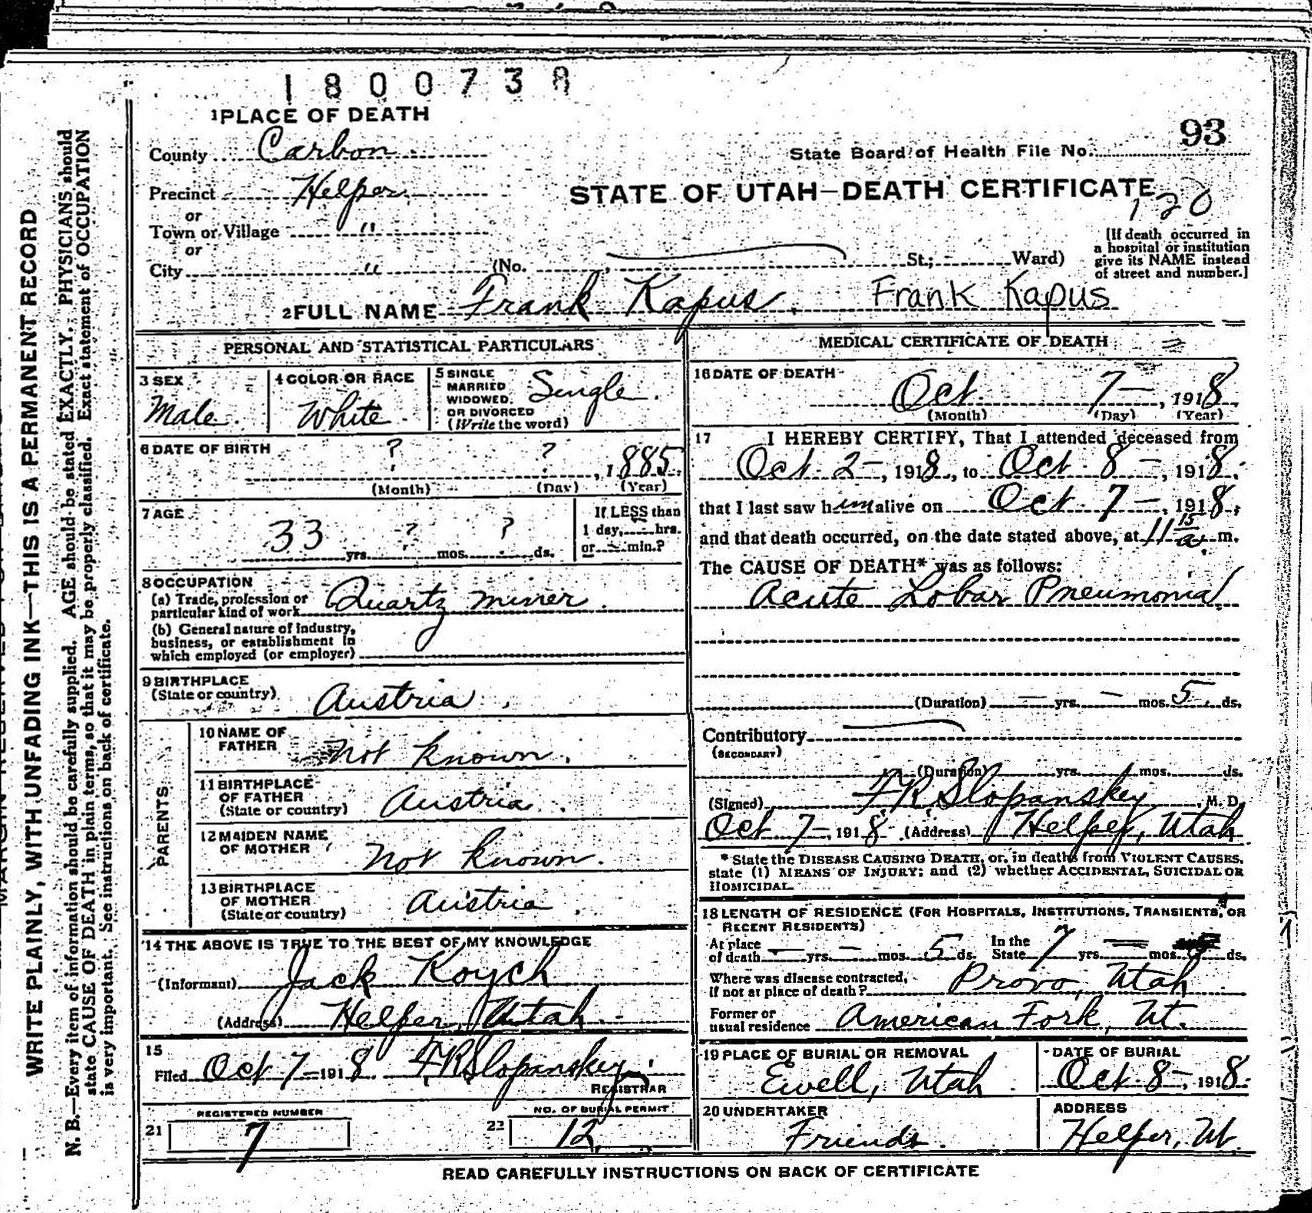 1800738
1 PLACE OF DEATH
County Carbon
93
State Board of Health File No.
Precinct Helper
STATE OF UTAH—DEATH CERTIFICATE
120
or
Town or Village "
or
City "
(No. St.; Ward)
[If death occurred in
a hospital or institution
give its NAME instead
of street and number.]
2 FULL NAME Frank Kapus. Frank Kapus
PERSONAL AND STATISTICAL PARTICULARS
3 SEX
Male.
4 COLOR OR RACE
White
5 SINGLE
MARRIED
WIDOWED
OR DIVORCED
(Write the word)
Single.
6 DATE OF BIRTH
? ? , 1885.
(Month) (Day) (Year)
7 AGE
33 yrs. ? mos. ? ds.
If LESS than
1 day, — hrs.
or — min.?
8 OCCUPATION
(a) Trade, profession or
particular kind of work Quartz miner.
(b) General nature of industry,
business, or establishment in
which employed (or employer)
9 BIRTHPLACE
(State or country) Austria.
PARENTS
10 NAME OF
FATHER not known.
11 BIRTHPLACE
OF FATHER
(State or country) Austria.
12 MAIDEN NAME
OF MOTHER not known.
13 BIRTHPLACE
OF MOTHER
(State or country) Austria.
14 THE ABOVE IS TRUE TO THE BEST OF MY KNOWLEDGE
(Informant) Jack Koych
(Address) Helper, Utah.
15
Filed Oct 7—1918 F R Slopanskey.
REGISTRAR
21 REGISTERED NUMBER
7
22 NO. OF BURIAL PERMIT
12
MEDICAL CERTIFICATE OF DEATH
16 DATE OF DEATH
Oct. 7—, 1918
(Month) (Day) (Year)
17 I HEREBY CERTIFY, That I attended deceased from
Oct. 2—, 1918, to Oct. 8—, 1918.
that I last saw him alive on Oct. 7—, 1918,
and that death occurred, on the date stated above, at 11 15 a. m.
The CAUSE OF DEATH* was as follows:
Acute Lobar Pneumonia
(Duration) — yrs. — mos. 5. ds.
Contributory
(SECONDARY)
(Duration) yrs. mos. ds.
(Signed) F R Slopanskey, M. D.
Oct 7—, 1918. (Address) Helper, Utah
* State the DISEASE CAUSING DEATH, or, in deaths from VIOLENT CAUSES,
state (1) MEANS OF INJURY; and (2) whether ACCIDENTAL, SUICIDAL OR
HOMICIDAL.
18 LENGTH OF RESIDENCE (FOR HOSPITALS, INSTITUTIONS, TRANSIENTS, OR
RECENT RESIDENTS)
At place
of death — yrs. — mos. 5 ds.
In the
State 7 yrs. — mos. ds.
Where was disease contracted,
if not at place of death? Provo, Utah
Former or
usual residence American Fork, Ut.
19 PLACE OF BURIAL OR REMOVAL
Ewell, Utah
DATE OF BURIAL
Oct 8—, 1918.
20 UNDERTAKER
Friends.
ADDRESS
Helper, Ut.
READ CAREFULLY INSTRUCTIONS ON BACK OF CERTIFICATE
WRITE PLAINLY, WITH UNFADING INK—THIS IS A PERMANENT RECORD
N. B.—Every item of information should be carefully supplied. AGE should be stated EXACTLY. PHYSICIANS should
state CAUSE OF DEATH in plain terms, so that it may be properly classified. Exact statement of OCCUPATION
is very important. See instructions on back of certificate.